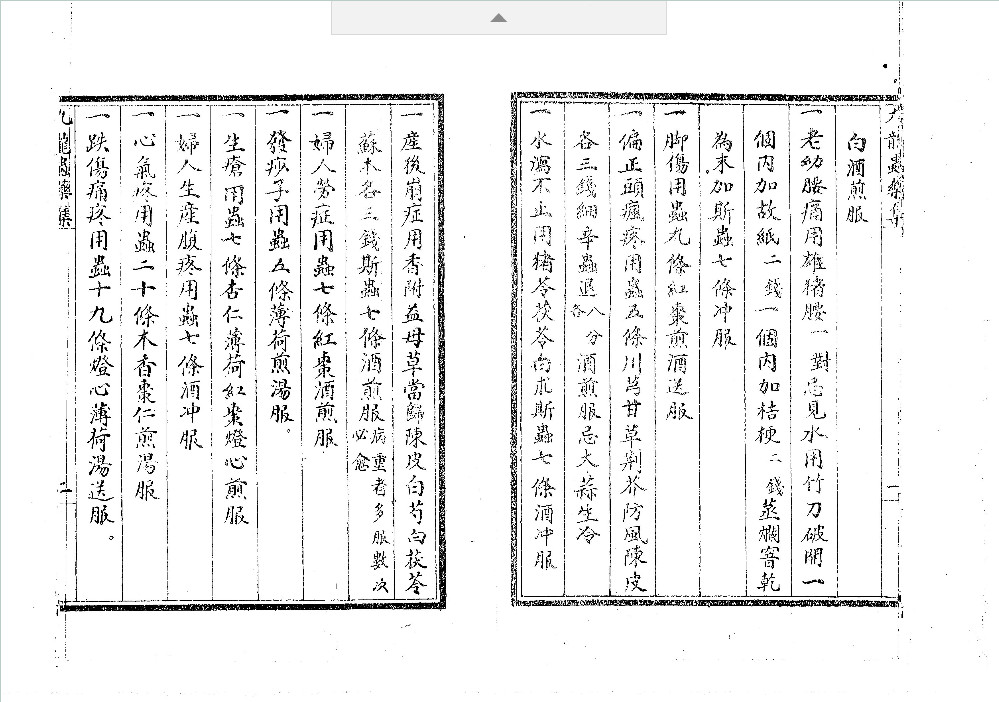 九龍蟲藥集
白酒煎服
一老幼腰痛用雄猪腰一對忌見水用竹刀破開一
個內加故紙二錢一個內加桔梗二錢蒸爛窨乾
為末加斯蟲七條冲服
一脚傷用蟲九條紅棗煎酒送服
一偏正頭瘋疼用蟲五條川芎甘草荆芥防風陳皮
各三錢細辛蟲退各八分酒煎服忌大蒜生冷
一水瀉不止用猪苓茯苓白朮斯蟲七條酒冲服
一產後崩症用香附益母草當歸陳皮白芍白茯苓
蘇木各三錢斯蟲七條酒煎服病重者多服數次必愈
一婦人勞症用蟲七條紅棗酒煎服
一發痧子用蟲五條薄荷煎湯服。
一生瘡用蟲七條杏仁薄荷紅棗燈心煎服
一婦人生產腹疼用蟲七條酒冲服
一心氣疼用蟲二十條木香棗仁煎湯服
一跌傷痛疼用蟲十九條燈心薄荷湯送服。
九龍蟲藥集 二